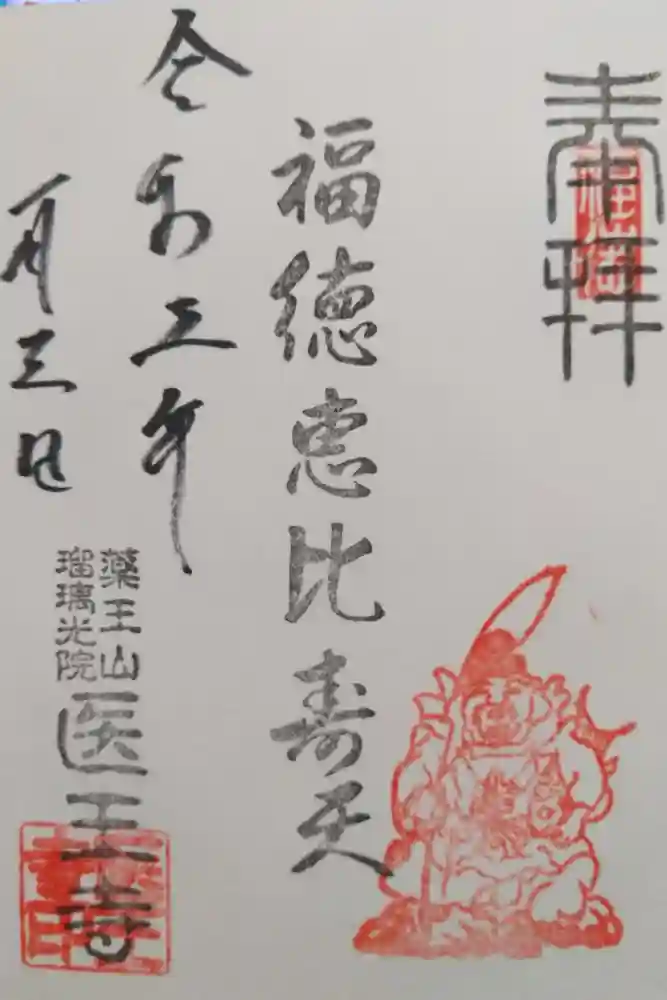 奉拝
福徳恵比寿天
令和五年
一月三日
薬王山
瑠璃光院
医王寺